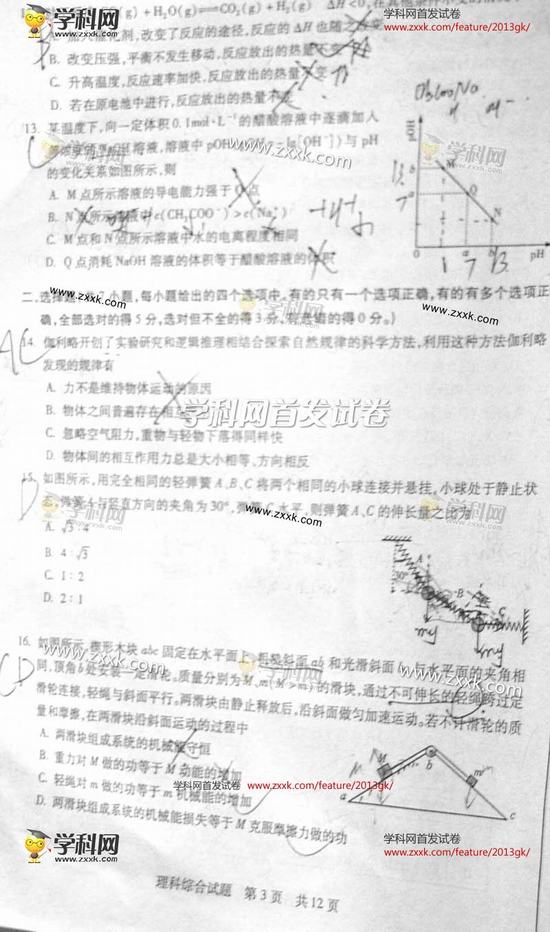 CO(g)+H₂O(g)⇌CO₂(g)+H₂(g) ΔH<0,在
学科网首发试卷
www.zxxk.com/feature/2013gk/
学科网
zxxk.com
催化剂,改变了反应的途径,反应的 ΔH 也随之
B. 改变压强,平衡不发生移动,反应放出的热量不变
C. 升高温度,反应速率加快,反应放出的热量不变
D. 若在原电池中进行,反应放出的热量不变
CH₃COONa
13. 某温度下,向一定体积 0.1mol·L⁻¹的醋酸溶液中逐滴加入
溶液,溶液中 pOH lg[OH⁻])与 pH
www.zxxk.com
的变化关系如图所示,则
A. M 点所示溶液的导电能力强于 Q 点
B. N 点所示溶液中 c(CH₃COO⁻)>c(Na⁺)
C. M 点和 N 点所示溶液中水的电离程度相同
D. Q 点消耗 NaOH 溶液的体积等于醋酸溶液的体积
M
Q
N
a
b
pH
1 7 13
二、选择题 7 小题,每小题给出的四个选项中,有的只有一个选项正确,有的有多个选项正
确,全部选对的得 5 分,选对但不全的得 3 分,有选错的得 0 分。)
www.zxxk.com
AC
14. 伽利略开创了实验研究和逻辑推理相结合探索自然规律的科学方法,利用这种方法伽利略
发现的规律有
A. 力不是维持物体运动的原因
B. 物体之间普遍存在相互
学科网首发试卷
C. 忽略空气阻力,重物与轻物下落得同样快
D. 物体间的相互作用力总是大小相等、方向相反
D
15. 如图所示,用完全相同的轻弹簧 A、B、C 将两个相同的小球连接并悬挂,小球处于静止状
态,弹簧 A 与竖直方向的夹角为 30°,弹簧 C 水平,则弹簧 A、C 的伸长量之比为
学科网
zxxk.com
www.zxxk.com
A. √3:4
B. 4:√3
C. 1:2
D. 2:1
A
30°
B
C
mg
mg
CD
16. 如图所示,楔形木块 abc 固定在水平面上,粗糙斜面 ab 和光滑斜面 bc 与水平面的夹角相
同,顶角 b 处安装一定滑轮。质量分别为 M、m(M>m)的滑块,通过不可伸长的轻绳跨过定
滑轮连接,轻绳与斜面平行。两滑块由静止释放后,沿斜面做匀加速运动。若不计滑轮的质
量和摩擦,在两滑块沿斜面运动的过程中
www.zxxk.com
www.zxxk.com
A. 两滑块组成系统的机械能守恒
B. 重力对 M 做的功等于 M 动能的增加
C. 轻绳对 m 做的功等于 m 机械能的增加
D. 两滑块组成系统的机械能损失等于 M 克服摩擦力做的功
学科网首发试卷
www.zxxk.com/feature/2013gk/
M
b
m
a
c
学科网
zxxk.com
学科网首发试卷
www.zxxk.com/feature/2013gk/
理科综合试题 第 3 页 共 12 页